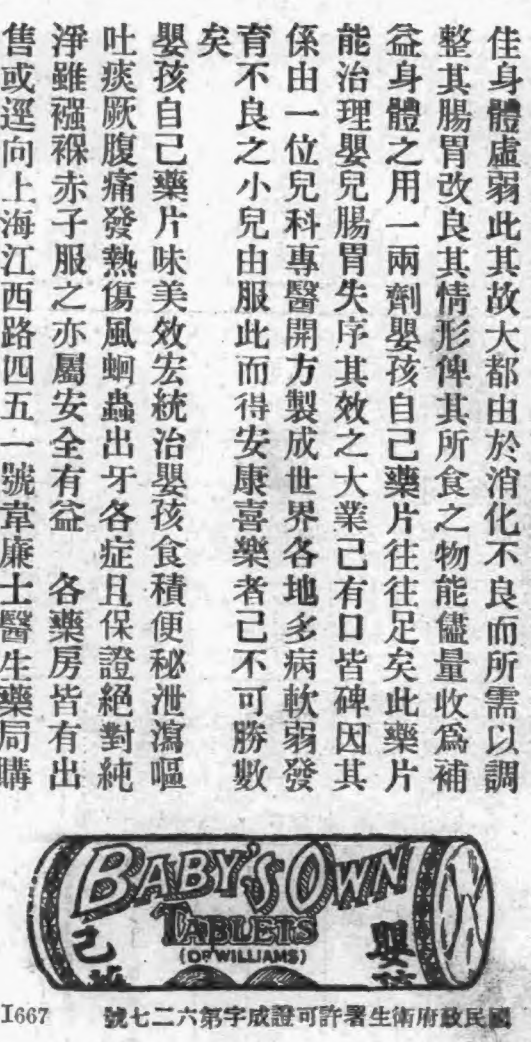 佳身體虛弱此其故大都由於消化不良而所需以調
整其腸胃改良其情形俾其所食之物能儘量收爲補
益身體之用一兩劑嬰孩自己藥片往往足矣此藥片
能治理嬰兒腸胃失序其效之大業己有口皆碑因其
係由一位兒科專醫開方製成世界各地多病軟弱發
育不良之小兒由服此而得安康喜樂者己不可勝數
矣
嬰孩自己藥片味美效宏統治嬰孩食積便秘泄瀉嘔
吐痰厥腹痛發熱傷風蛔蟲出牙各症且保證絕對純
淨雖襁褓赤子服之亦屬安全有益 各藥房皆有出
售或逕向上海江西路四五一號韋廉士醫生藥局購
BABY'S OWN
TABLETS
(OF WILLIAMS)
嬰孩
己
國民政府衛生署許可證成字第六二七號
I667